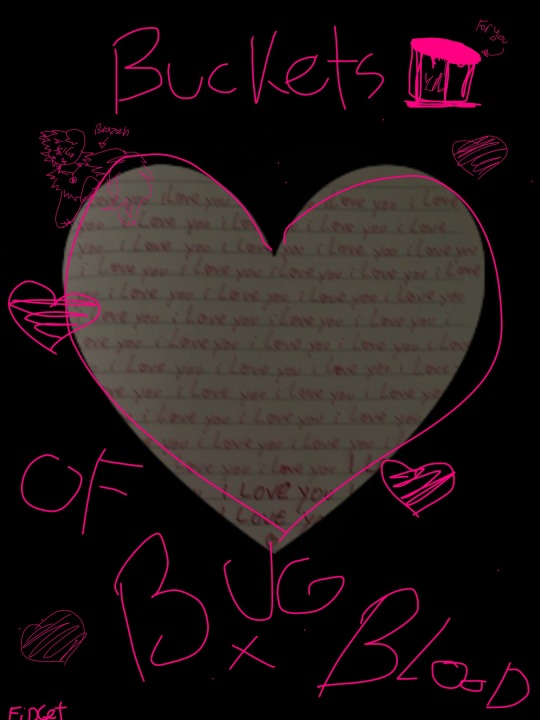 For you
Buckets
Brozah
love you i Love you i Love you i Love
you i Love you i Love you i Love
you i Love you i Love you i Love you
i Love you i Love you i Love you i Love
you i Love you i Love you i Love you
i Love you i Love you i Love you i
Love you i Love you i Love you i Love
you i Love you i Love you i Love you
i Love you i Love you i Love you
i Love you i Love you i Love you
you i Love you i Love you
Love you i Love you I L
I LOVE you I
LOVE y
OF
BUG
x BLOOD
FiDGet